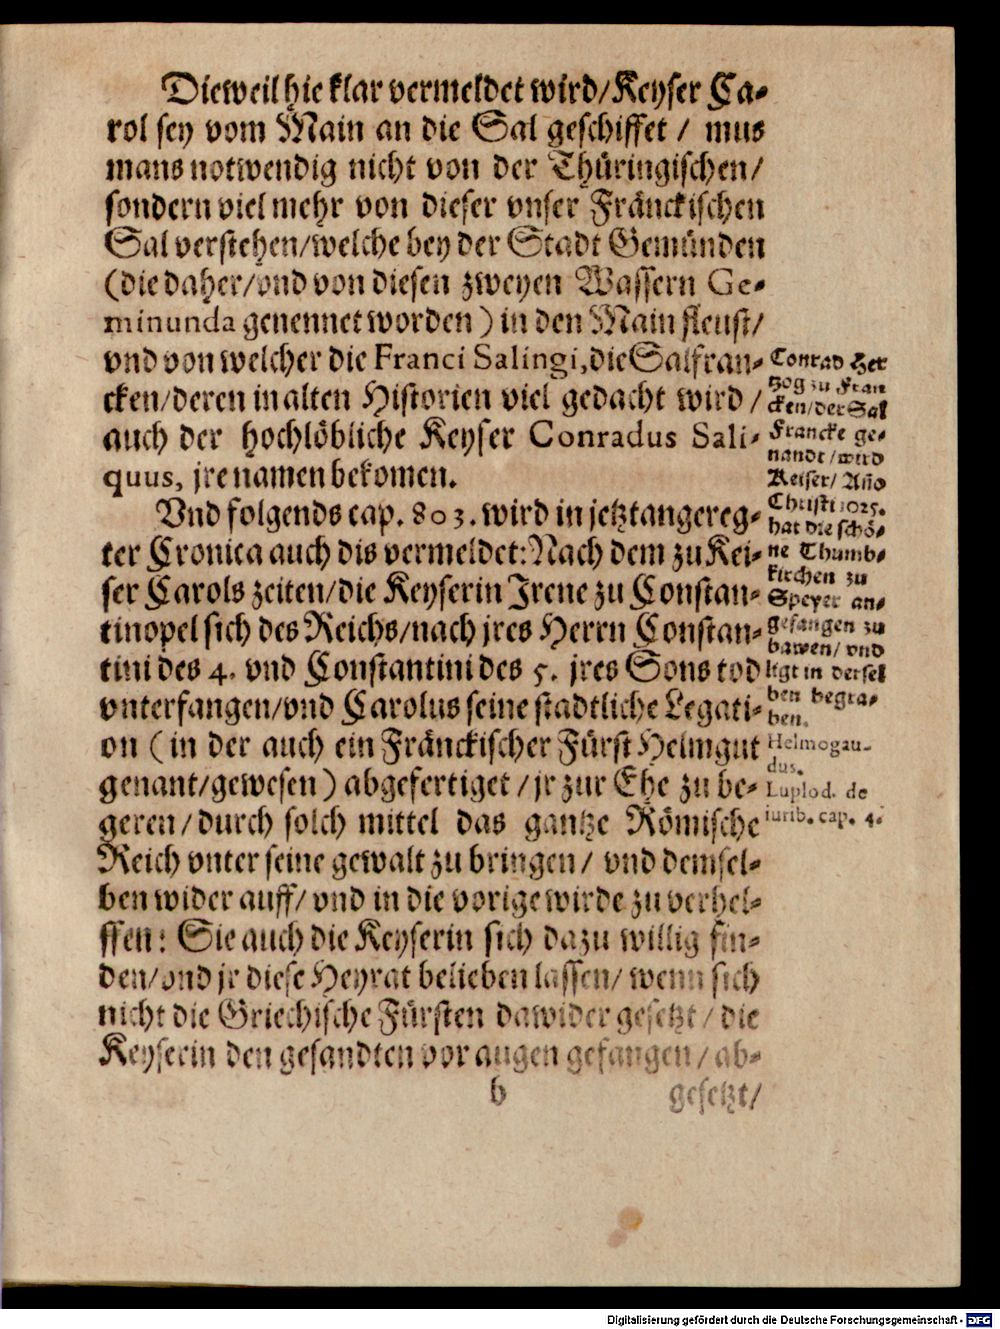 Dieweil hie klar vermeldet wird/Keyser Ca-
rol sey vom Main an die Sal geschiffet / mus
mans notwendig nicht von der Thüringischen/
sondern viel mehr von dieser vnser Fränckischen
Sal verstehen/welche bey der Stadt Gemünden
(die daher/vnd von diesen zweyen Wassern Ge-
minunda genennet worden) in den Main fleust/
vnd von welcher die Franci Salingi, die Salfran-
cken/deren in alten Historien viel gedacht wird /
auch der hochlöbliche Keyser Conradus Sali-
quus, jre namen bekomen.
Vnd folgends cap. 803. wird in jetztangereg-
ter Cronica auch dis vermeldet: Nach dem zu Kei-
ser Carols zeiten/die Keyserin Irene zu Constan-
tinopel sich des Reichs/nach jres Herrn Constan-
tini des 4. vnd Constantini des 5. jres Sons tod
vnterfangen/vnd Carolus seine stadtliche Legati-
on (in der auch ein Fränckischer Fürst Helmgut
genant/gewesen) abgefertiget /jr zur Ehe zu be-
geren/durch solch mittel das gantze Römische
Reich vnter seine gewalt zu bringen/ vnd demsel-
ben wider auff/ vnd in die vorige wirde zu verhel-
ffen: Sie auch die Keyserin sich dazu willig fin-
den/vnd jr diese Heyrat belieben lassen/ wenn sich
nicht die Griechische Fürsten dawider gesetzt / die
Keyserin den gesandten vor augen gefangen / ab-
b gesetzt/
Conrad Her
tzog zu Fran
cken/der Sal
Francke ge-
nandt/wird
Keiser/ Año
Christi 1025.
hat die schö-
ne Thumb-
kirchen zu
Speyer an-
gefangen zu
bawen/ vnd
ligt in dersel
ben begra-
ben.
Helmogau-
dus.
Luplod. de
iurib. cap. 4.
Digitalisierung gefördert durch die Deutsche Forschungsgemeinschaft - DFG